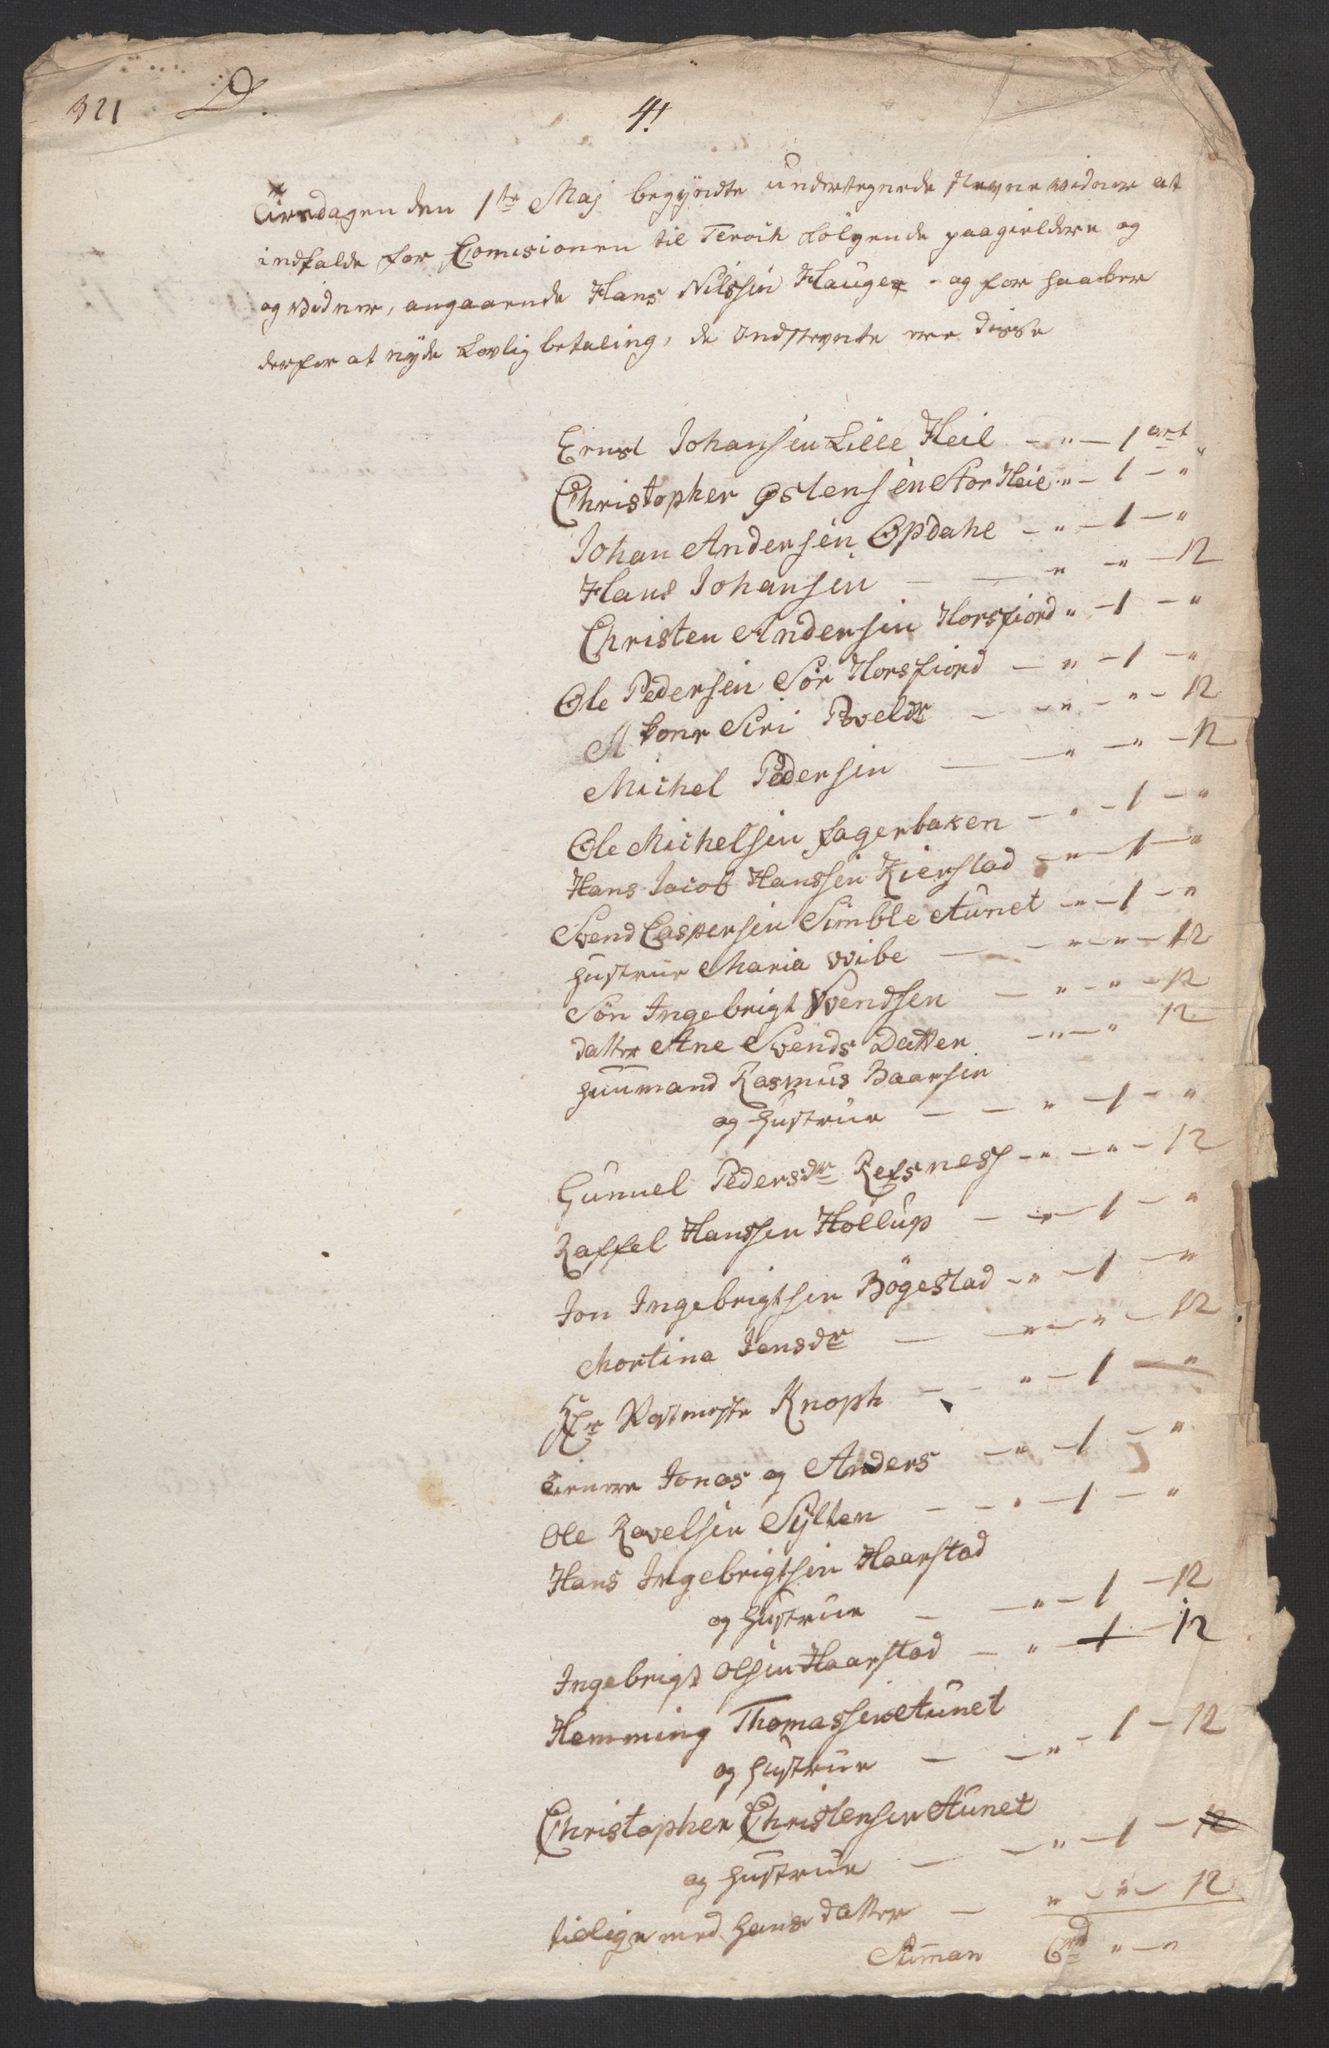 321 D. 4!
Tirsdagen den 1te Maj begyndte undertegnede stevnevidner at
indkalde for Comisionen til Terøik følgende paagieldere og
og vidner, angaaende Hans Nilssen Hauge - og for haaber
derfor at nyde Lovlig betaling, de Indstevnte ere disse
Ernst Johansen Lille Heil — " — 1 ort "
Christopher Østensen Stor Heil " — 1 — "
Johan Andersen Opdahl — " — 1 — "
Hans Johansen — — " — " — 12
Christen Andersen Horsfiord " — 1 — "
Ole Pedersen Sør Horsfiord — " — 1 — "
kone Siri Povelsdr — — " — " — 12
Michel Pedersen — — " — " — 12
Ole Michelsen Fagerbaken — " — 1 — "
Hans Jacob Hanssen Kierstad — " — 1 — "
Svend Caspersen Simble Aunet — " — 1 — "
hustrue Maria Wibe — — " — " — 12
Søn Ingebrigt Svendsen — " — " — 12
datter Ane Svends Datter — " — " 12
huusmand Rasmus Baarsen
og hustrue — — " — 1 — "
Gunnel Pedersdr Refsness — " — " — 12
Raffel Hanssen Hollup — " — 1 — "
Jon Ingebrigtsen Bögestad — " — 1 — "
Mortina Jensdr — — " — " — 12
Hr Postmester Knoph — — " — 1 — "
tienere Jonas og Anders — " — 1 — "
Ole Ravelsen Sylten — — " — 1 — "
Hans Ingebrigtsen Haarstad
og hustrue — — " — 1 — 12
Ingebrigt Olsen Haarstad — " — 1 — 12
Hemming Thomassen Aunet
og hustrue — — " — 1 — 12
Christopher Christensen Aunet
og hustrue — — " — 1 — 12
tillige med hans datter — " — " — 12
Suman 6 rd " — "